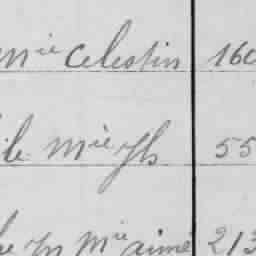 Mie Celestin 160
ile Mie Jh 55
Mie aimé 213